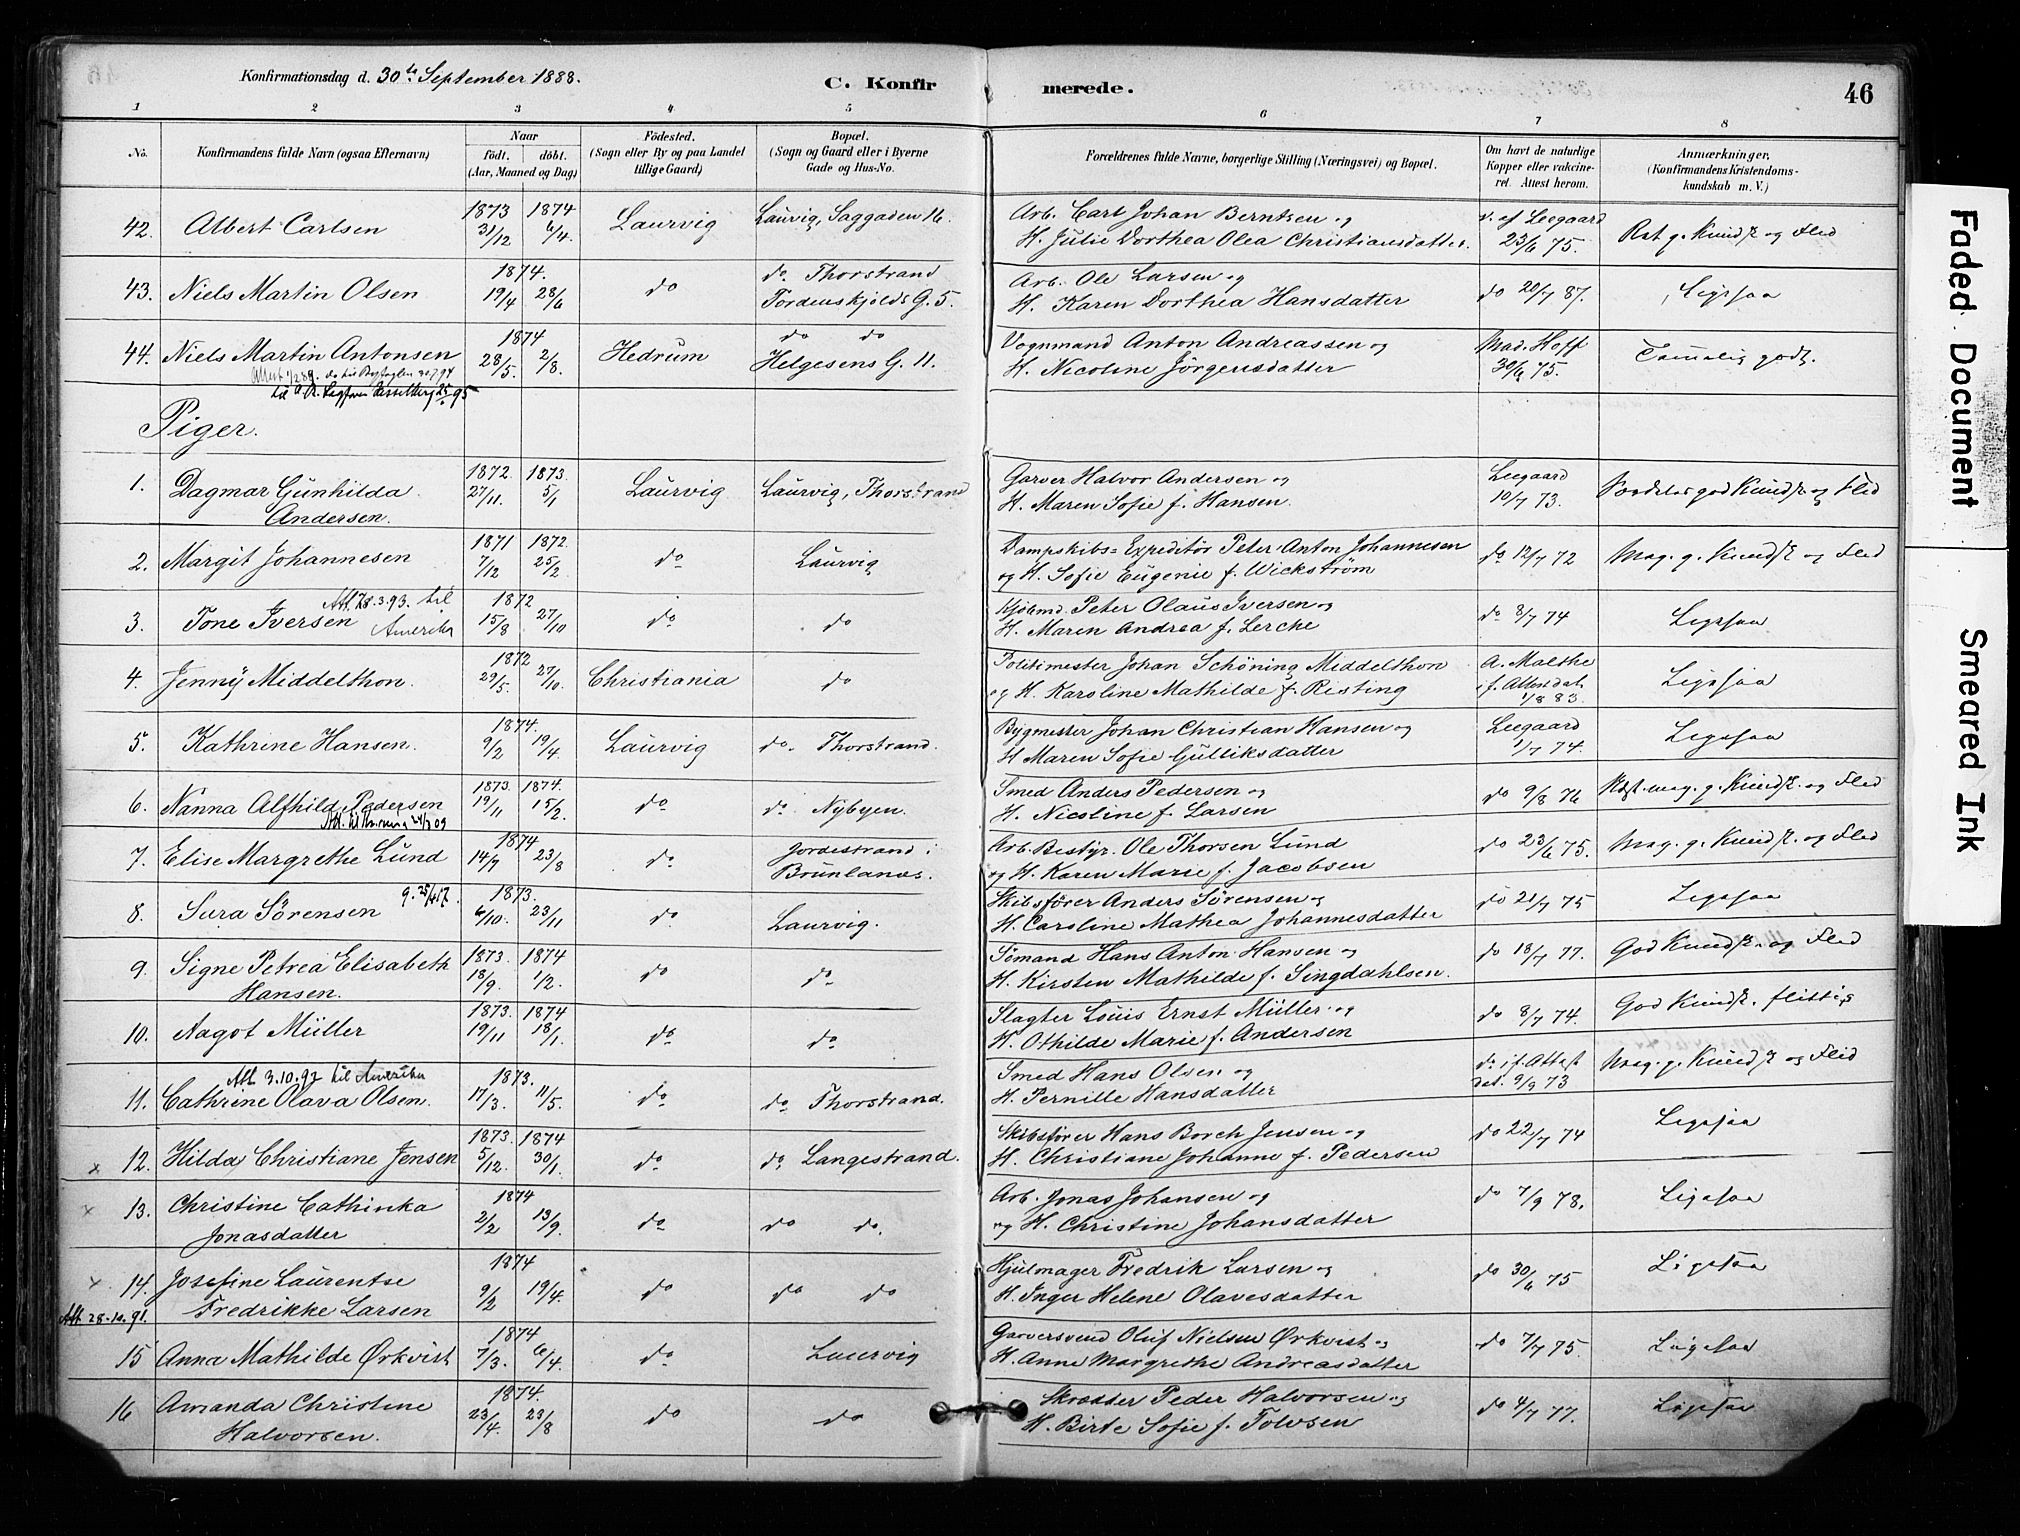 Konfirmationsdag d. 30te September 1888.
C. Konfirmerede.
46
1 2 3 4 5 6 7 8
No.
Konfirmandens fulde Navn (ogsaa Efternavn)
Naar
födt. döbt.
(Aar, Maaned og Dag)
Födested.
(Sogn eller By og paa Landet
tillige Gaard)
Bopæl.
(Sogn og Gaard eller i Byerne
Gade og Hus-No.
Forældrenes fulde Navne, borgerlige Stilling (Næringsvei) og Bopæl.
Om havt de naturlige
Kopper eller vakcine-
ret. Attest herom.
Anmærkninger,
(Konfirmandens Kristendoms-
kundskab m. V.)
42. Albert Carlsen 1873 31/12 1874 6/4. Laurvig Laurvig, Saggaden 16. Arb. Carl Johan Berntsen og
H. Julie Dorthea Olea Christiansdatter. v. af Leegaard 23/6 75.
43. Niels Martin Olsen 1874. 19/4 28/6 do do Thorstrand
Tordenskjolds G. 5. Arb. Ole Larsen og
H. Karen Dorthea Hansdatter do 20/7 87. Ligesaa
44. Niels Martin Antonsen 1874 28/5. 2/8. Hedrum do do
Helgesens G. 11. Vognmand Anton Andreassen og
H. Nicoline Jörgensdatter Mad. Hoff 30/6 75. Temmelig godt.
Piger.
1. Dagmar Gunhilda
Andersen. 1872 27/11. 1873 5/1 Laurvig Laurvig, Thorstrand Garver Halvor Andersen og
H. Maren Sofie f. Hansen. Leegaard 10/7 73. Særdeles god Kundsk. og Flid
2. Margit Johannesen 1871 7/12 1872. 25/2 do Laurvig Dampskibs-Expeditör Peter Anton Johannesen
og H. Sofie Eugenie f. Wickström do 12/7 72 Meg. g. Kundsk. og Flid
3. Tone Iversen Att. 28.3.93. til
Amerika 1872 15/8 27/10 do do Kjöbmd. Peter Olaus Iversen og
H. Maren Andrea f. Lerche do 8/7 74 Ligesaa
4. Jenny Middelthon. 1872 29/5. 27/10. Christiania do Politimester Johan Schöning Middelthon
og H. Karoline Mathilde f. Risting A. Malthe
i f. Attest dat. 1/8 83 Ligesaa
5. Kathrine Hansen. 1874. 9/2 19/4 Laurvig do. Thorstrand. Bygmester Johan Christian Hansen og
H Maren Sofie Gulliksdatter Leegaard 1/7 74. Ligesaa
6. Nanna Alfhild Pedersen 1873. 19/11 1874. 15/2. do do. Nybyen. Smed Anders Pedersen og
H. Nicoline f. Larsen do 9/8 76 meg. g. Kundsk. og Flid
7. Elise Margrethe Lund 1874 14/7 23/8 do Jordestrand i
Brunlanæs. Arb. Bestyr. Ole Thorsen Lund
og H. Karen Marie f. Jacobsen do 23/6 75. Meg. g. Kundsk. og Flid
8. Sura Sörensen 1873. 6/10. 23/11 do Laurvig. Skibsförer Anders Sörensen og
H. Caroline Mathea Johannesdatter do 21/7 75 Ligesaa
9. Signe Petrea Elisabeth
Hansen. 1873. 18/9. 1874 1/2. do do Sömand Hans Anton Hansen og
H. Kirsten Mathilde f. Singdahlsen. do 18/7 77. God Kundsk. og Flid
10. Aagot Müller 1873. 19/11 1874 18/1. do do Slagter Louis Ernst Müller og
H. Othilde Marie f. Andersen do 8/7 74. God Kundsk. flittig
Att. 3.10.92 til Amerika
11. Cathrine Olava Olsen. 1873. 17/3. 11/5. do do. Thorstrand. Smed Hans Olsen og
H. Pernille Hansdatter do i f. Attest
dat. 9/9 73 Meg. g. Kundsk og Flid
x 12. Hilda Christiane Jensen 1873. 5/12. 1874 30/1. do do Langestrand. Skibsförer Hans Borch Jensen og
H. Christiane Johanne f. Pedersen do 22/7 74 Ligesaa
x 13. Christine Cathinka
Jonasdatter 1874 2/2 13/9. do do do. Arb. Jonas Johansen og
og H. Christine Johansdatter do 7/9 78. Ligesaa
x 14. Josefine Laurentse
Fredrikke Larsen 1874 9/2 19/4. do do do Hjulmager Fredrik Larsen og
H. Inger Helene Olavesdatter do 30/6 75 Ligesaa
Att. 28.10.91.
15 Anna Mathilde Ørkvist 1874 7/3. 6/4. do Laurvig Garversvend Oluf Nielsen Ørkvist og
H. Anne Margrethe Andreasdatter do 7/7 75. Ligesaa
16 Amanda Christine
Halvorsen. 1874. 23/4. 23/8 do do Skrædder Peder Halvorsen og
H. Birte Sofie f. Tolvsen do 4/7 77. Ligesaa
Faded Document
Smeared Ink